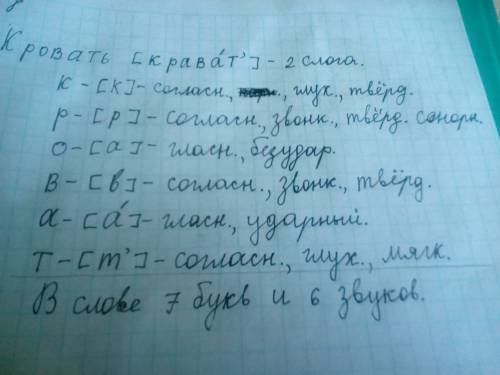 Кровать [крава́т'] - 2 слога.
К - [к] - согласн., глух., твёрд.
р - [р] - согласн., звонк., твёрд. сонорн.
о - [а] - гласн., безудар.
в - [в] - согласн., звонк., твёрд.
а - [а́] - гласн., ударный.
т - [т'] - согласн., глух., мягк.
В слове 7 букв и 6 звуков.